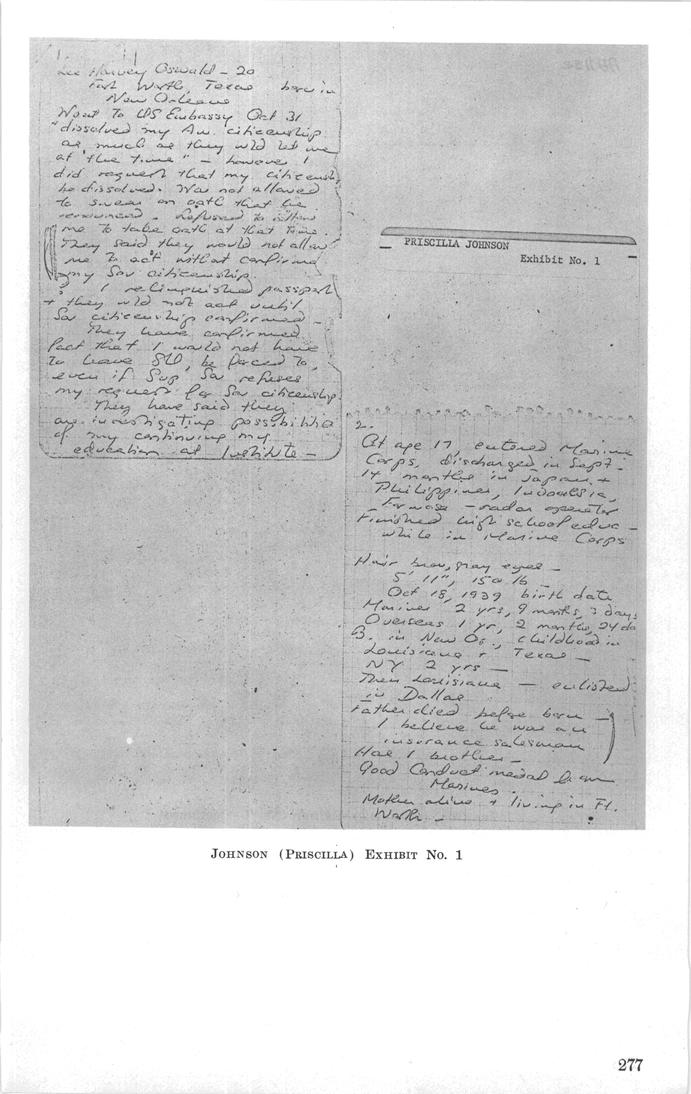 Lee Harvey Oswald – 20
Fort Worth, Texas born in
New Orleans
Went to US Embassy Oct 31
"dissolved my Am. citizenship
as much as they wld let me
at the time" – however I
did request that my citizenship
be dissolved. Was not allowed
to swear an oath that he
renounced. Refused to allow
me to take oath at that time.
They said they would not allow
me to act without confirmed
my Sov citizenship.
? I relinquished passport
+ they wld not act until
Sov citizenship confirmed –
They have confirmed
fact that I would not have
to leave SU, be forced to,
even if Sup Sov refuses
my request for Sov citizenship.
They have said they
are investigating possibilities
of my continuing my
education at Institute –
PRISCILLA JOHNSON
Exhibit No. 1
2.
At age 17, entered Marine
Corps, discharged in Sept –
14 months in Japan +
Philippines, Indonesia,
Formosa – radar operator
Finished high school educ –
while in Marine Corps
Hair brown, gray eyes –
5' 11", 150 lb –
Oct 18, 1939 birth date
Marines 2 yrs, 9 months, 3 days
Overseas 1 yr, 2 months, 24 da
B. in New Os., childhood in
Louisiana + Texas –
NY 2 yrs –
Then Louisiana – enlisted
in Dallas
Father died before born –
I believe he was an
insurance salesman
Has 1 brother –
Good Conduct medal from
Marines.
Mother alive + living in Ft.
Worth –
JOHNSON (PRISCILLA) EXHIBIT No. 1
277